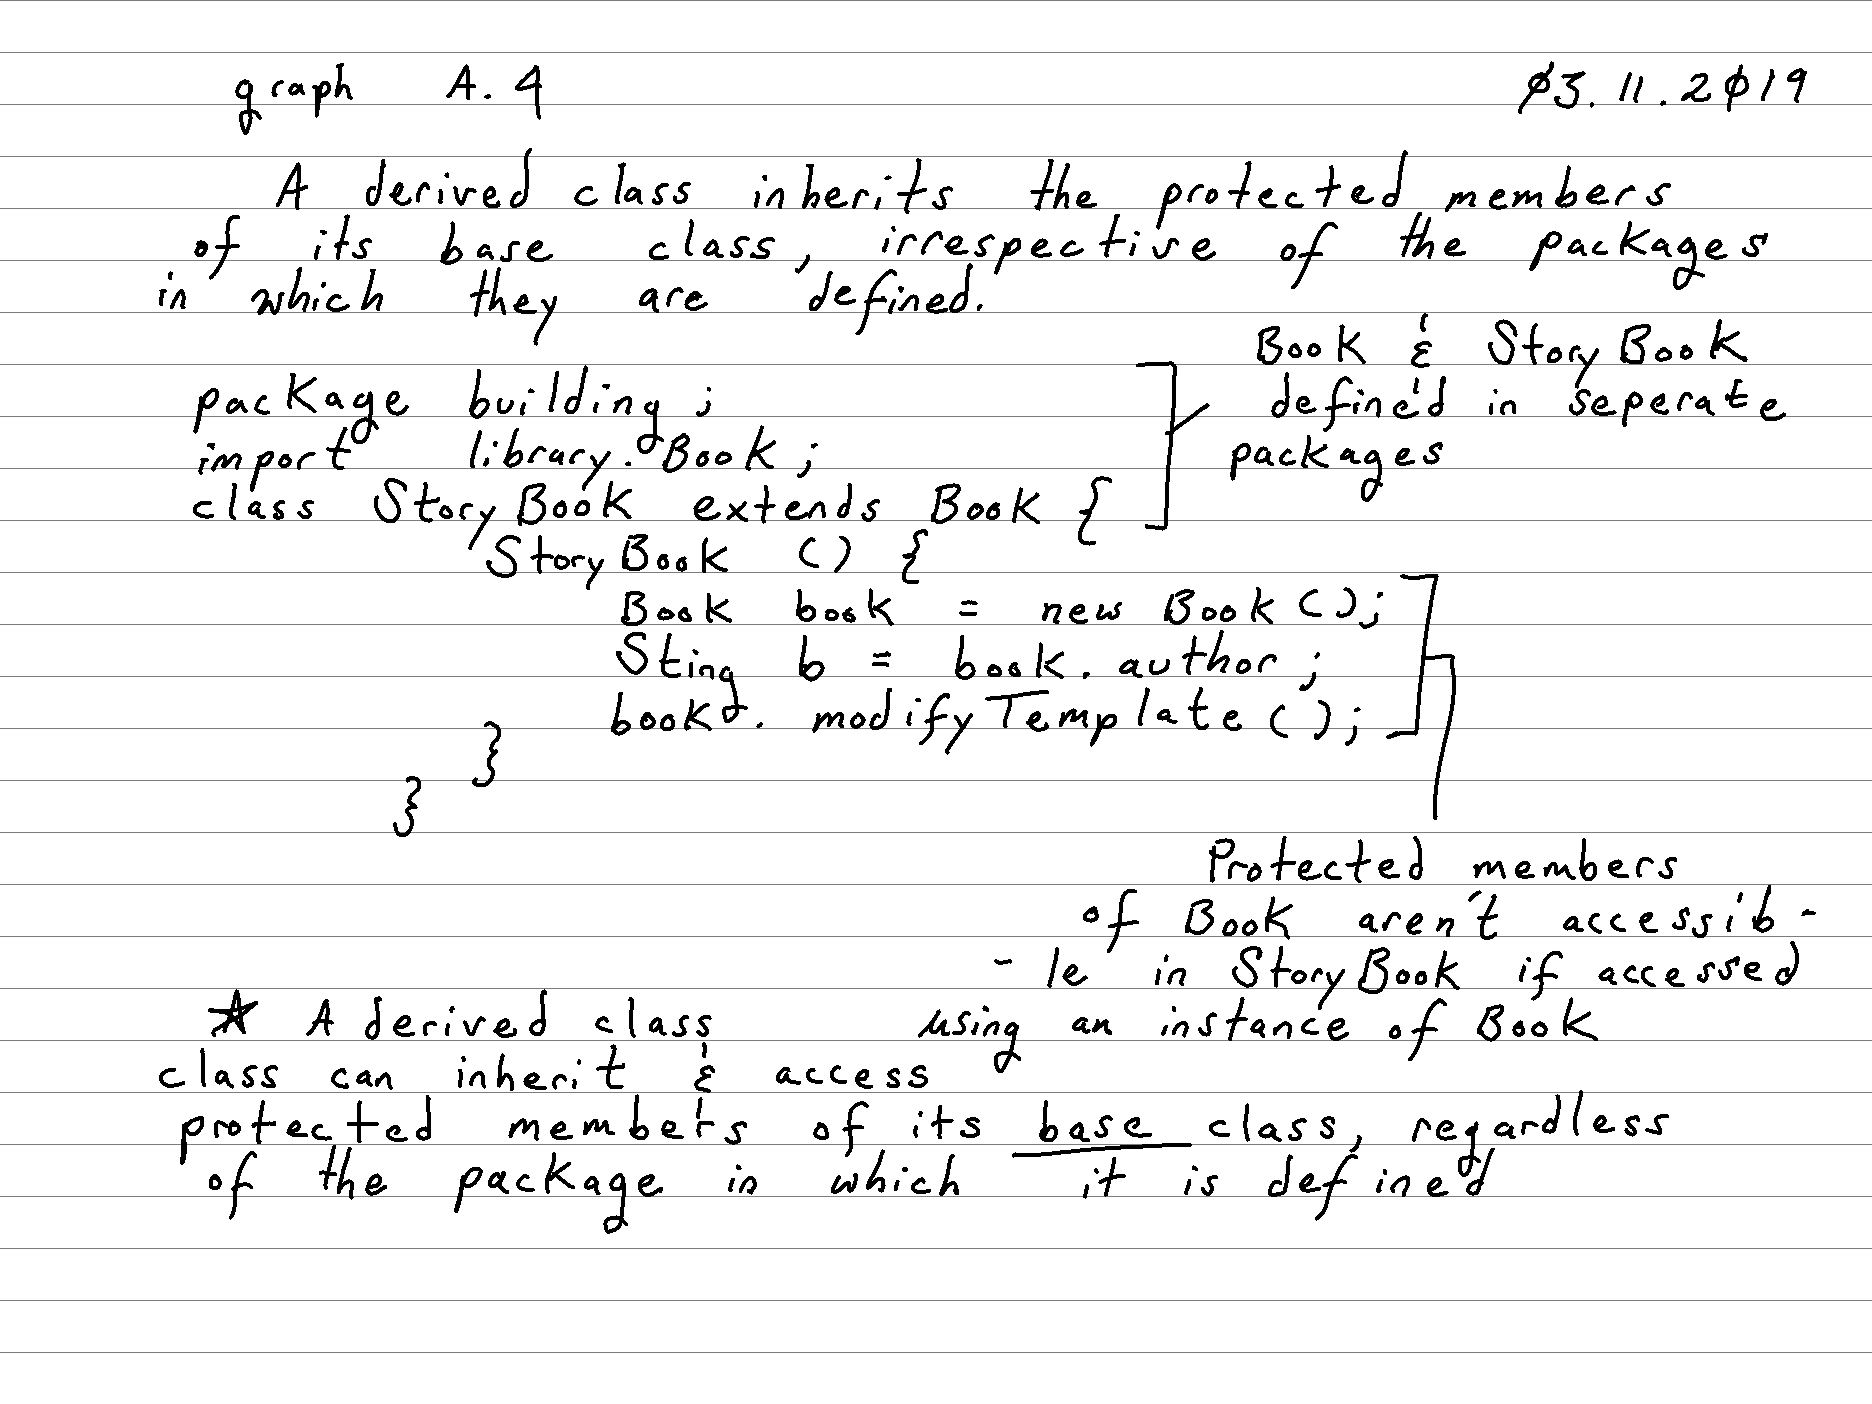 graph A.4 03.11.2019
A derived class inherits the protected members
of its base class, irrespective of the packages
in which they are defined.
Book & StoryBook
defined in seperate
packages
package building;
import library.Book;
class StoryBook extends Book {
StoryBook () {
Book book = new Book();
Sting b = book.author;
book.modifyTemplate();
}
}
Protected members
of Book aren't accessib-
-le in StoryBook if accessed
using an instance of Book
★ A derived class
class can inherit & access
protected members of its base class, regardless
of the package in which it is defined